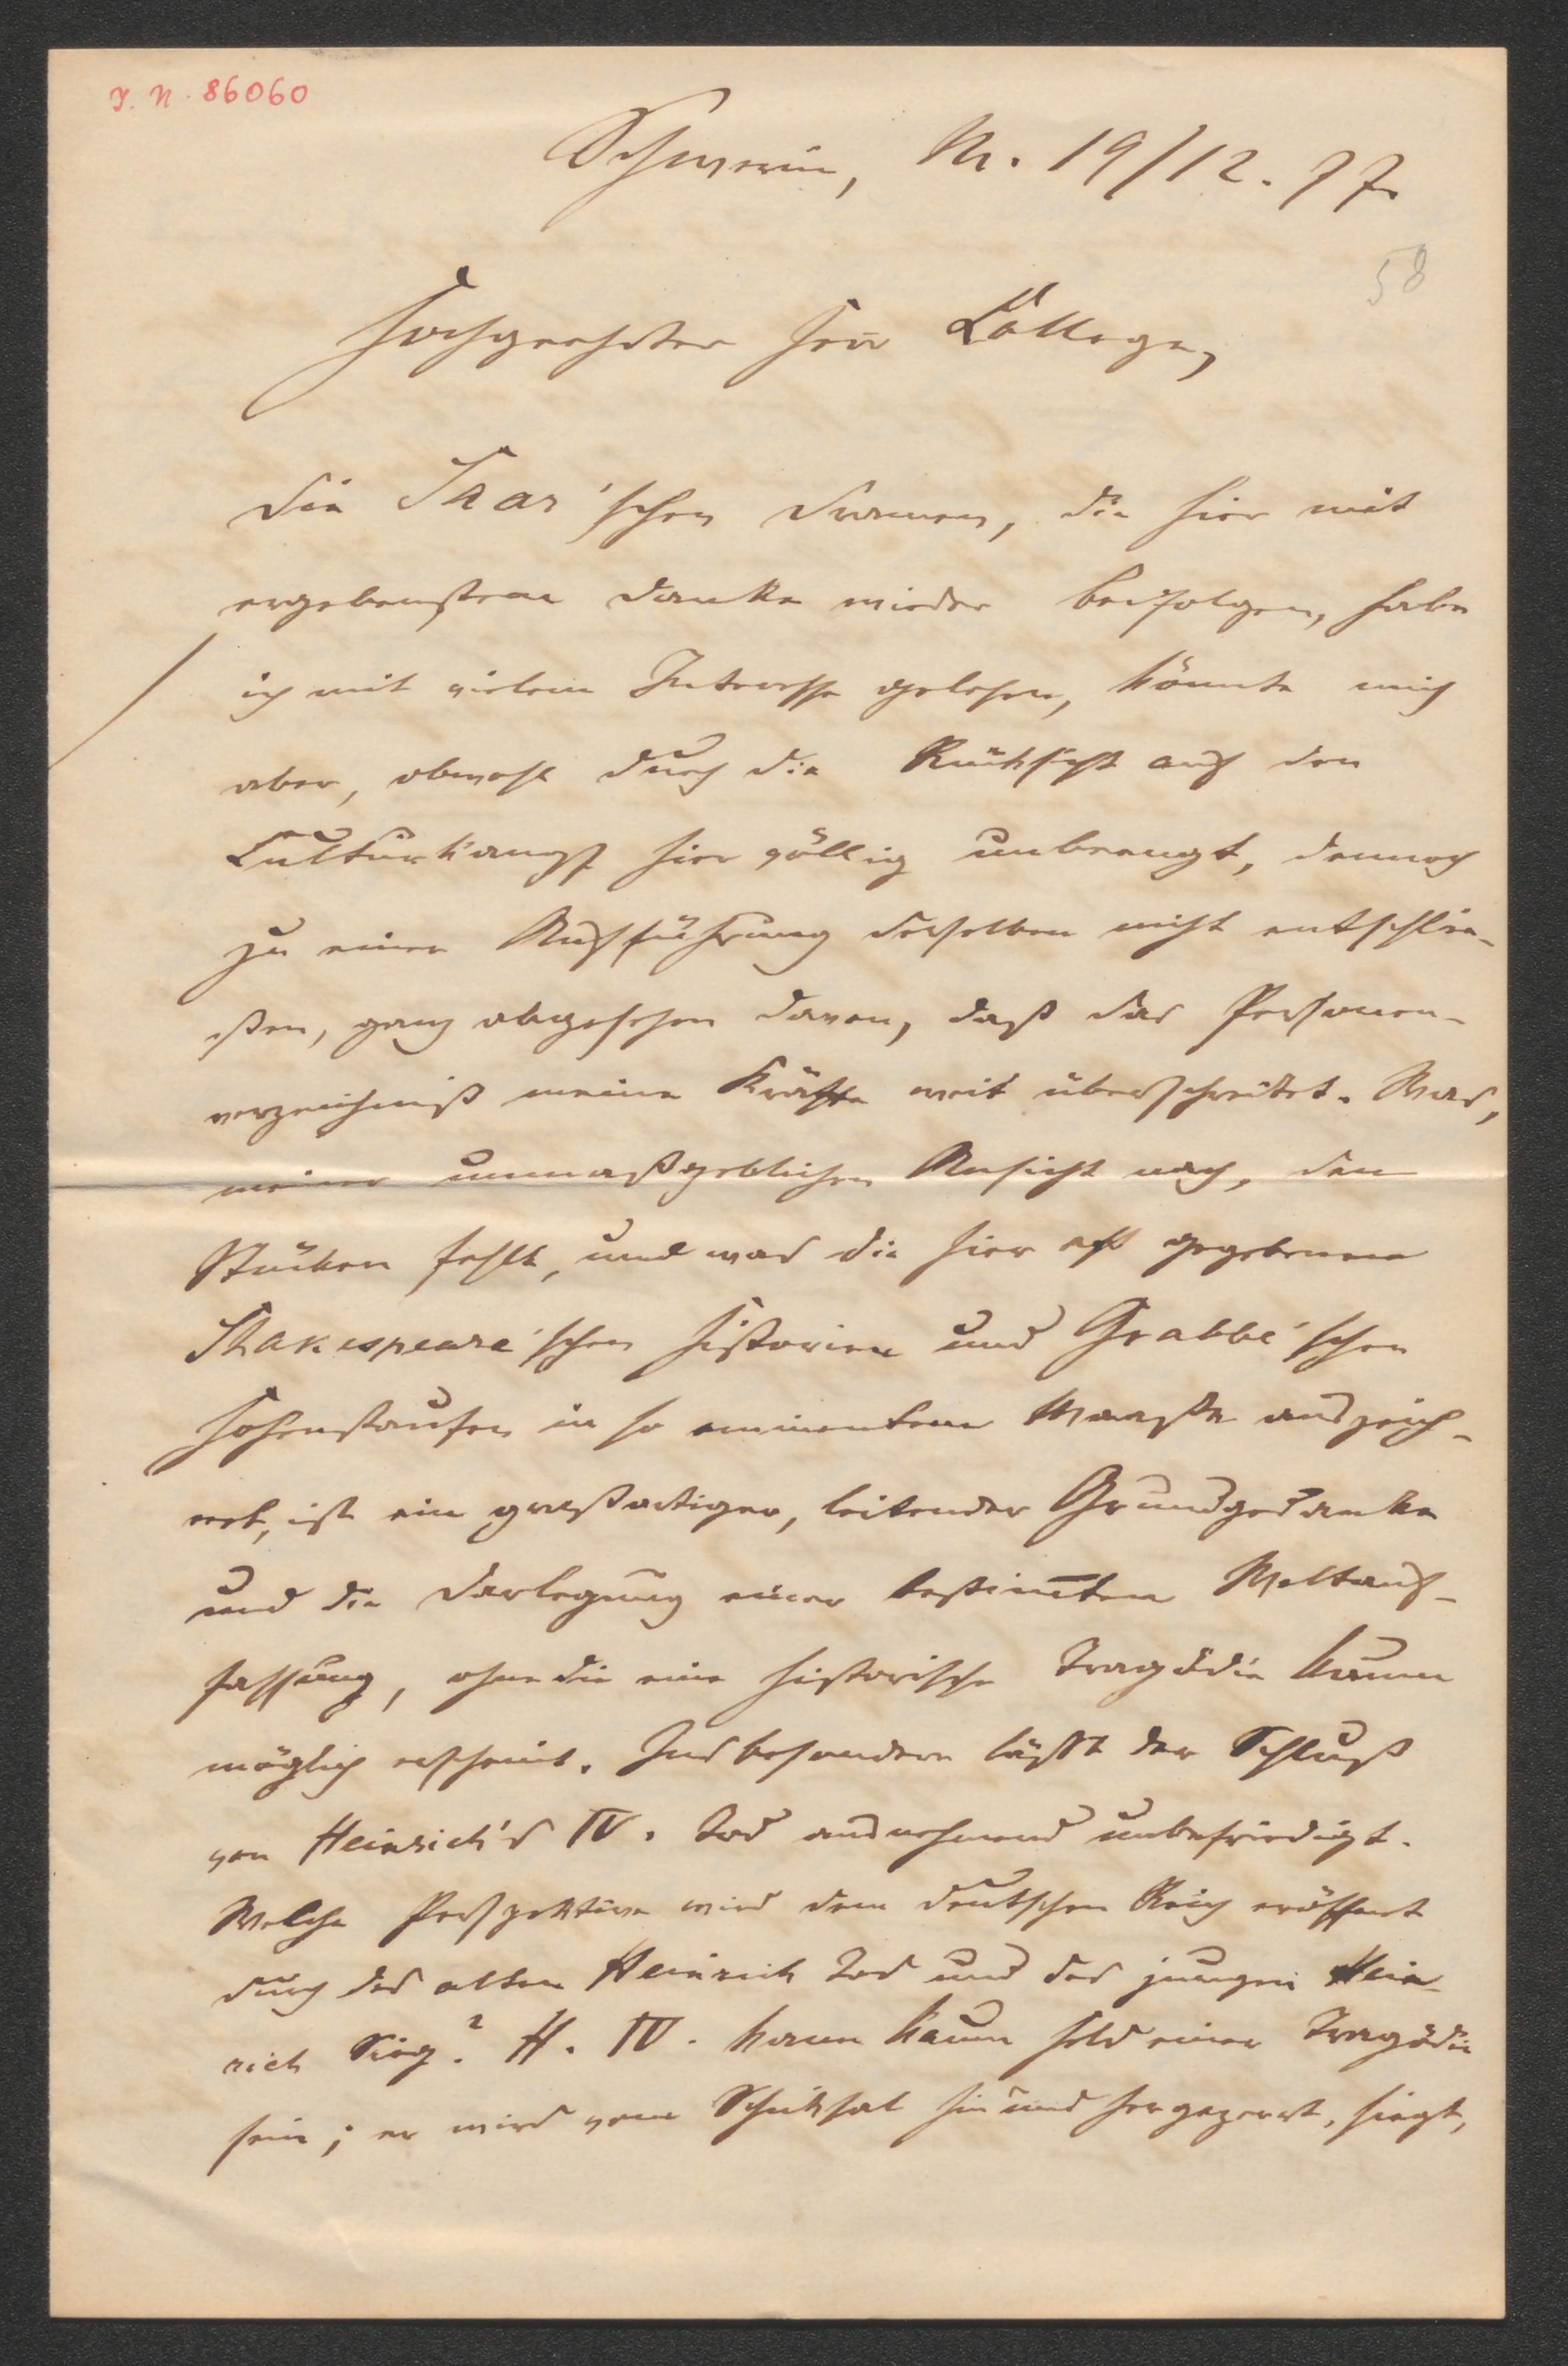 I. N. 86060
Schwerin, M. 19/12. 77.
58
Hochgeehrter Herr College,
die Saar'schen Dramen, die hier mit
ergebenstem Danke wieder beifolgen, habe
ich mit vielem Interesse gelesen, könnte mich
aber, obwohl durch die Rücksicht auf den
Culturkampf hier völlig unbeengt, dennoch
zu einer Aufführung derselben nicht entschlie-
ßen, ganz abgesehen davon, daß das Personen-
verzeichniß meine Kräfte weit überschreitet. Was,
meiner unmaßgeblichen Ansicht nach, den
Stücken fehlt, und was die hier oft gegebenen
Shakespeare'schen Historien und Grabbe'schen
Hohenstaufen in so eminentem Maaße auszeich-
net, ist ein großartiger, leitender Grundgedanke
und die Darlegung einer bestim̅ten Weltauf-
fassung, ohne die eine historische Tragödie kaum
möglich erscheint. Insbesondere läßt der Schluß
von Heinrich's IV. Tod ausnehmend unbefriedigt.
Welche Perspektive wird dem deutschen Reich eröffnet
durch des alten Heinrich Tod und des jungen Hein-
rich Sieg? H. IV. kann kaum Held einer Tragödie
sein; er wird vom Schicksal hin und hergezerrt, siegt,